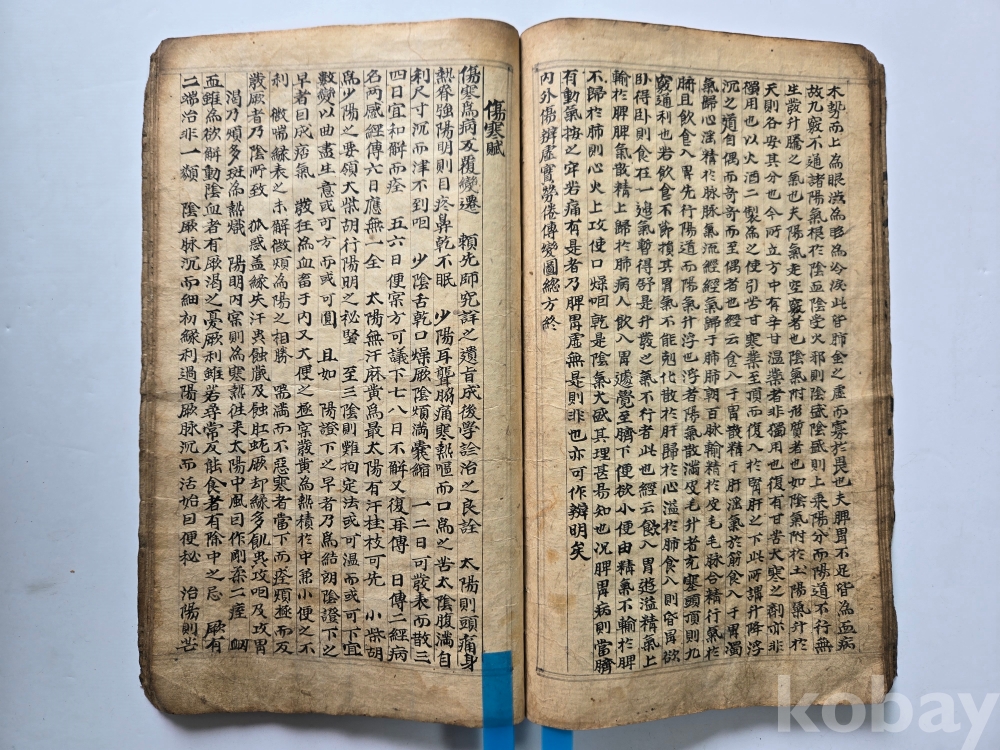 木勢而上為眼澁為眵為冷淚此皆肺金之虛而寡於畏也夫脾胃不足皆為血病
故九竅不通諸陽氣根於陰血陰受火邪則陰盛陰盛則上乘陽分而陽道不行無
生發升騰之氣也夫陽氣走空竅者也陰氣附形質者也如陰氣附於土陽氣升於
天則各安其分也今所立方中有辛甘溫藥者非獨用也復有甘苦大寒之劑亦非
獨用也以火酒二製為之使引苦甘寒藥至頂而復入於腎肝之下此所謂升降浮
沉之道自偶而奇奇而至偶者也經云食入于胃散精于肝淫氣於筋食入于胃濁
氣歸心淫精於脉脉氣流經經氣歸于肺肺朝百脉輸精於皮毛毛脉合精行氣於
腑且飲食入胃先行陽道而陽氣升浮也浮者陽氣散滿皮毛升者充塞頭頂則九
竅通利也若飲食不節損其胃氣不能剋化散於肝歸於心溢於肺食入則昏冒欲
卧得卧則食在一邊氣暫得舒是升發之氣不行者此也經云飲入胃遊溢精氣上
輸於脾脾氣散精上歸於肺病人飲入胃遽覺至臍下便欲小便由精氣不輸於脾
不歸於肺則心火上攻使口燥咽乾是陰氣大盛其理甚易知也况脾胃病則當臍
有動氣按之牢若痛有是者乃脾胃虛無是則非也亦可作辨明矣
內外傷辨虛實勞倦傳變圖總方終
傷寒賦
傷寒為病反覆變遷 賴先師究詳之遺旨成後學診治之良詮 太陽則頭痛身
熱脊強陽明則目疼鼻乾不眠 少陽耳聾脇痛寒熱嘔而口為之苦太陰腹滿自
利尺寸沉而津不到咽 少陰舌乾口燥厥陰煩滿囊縮 一二日可發表而散三
四日宜和解而痊 五六日便宲方可議下七八日不解又復再傳 日傳二經病
名兩感經傳六日應無一全 太陽無汗麻黃為最太陽有汗桂枝可先 小柴胡
為少陽之要領大柴胡行陽明之秘堅 至三陰則難拘定法或可溫而或可下宜
數變以曲盡生意或可方而或可圓 且如 陽證下之早者乃為結胸陰證下之
早者因成痞氣 發狂為血畜于內又大便之極宲發黃為熱積於中兼小便之不
利 微喘緣表之未解微煩為陽之相勝 喘滿而不惡寒者當下而痊煩極而反
發厥者乃陰所致 狐惑盖緣失汗虫蝕臟及蝕肛蛔厥却緣多飢虫攻咽及攻胃
渴乃煩多斑為熱熾 陽明內宲則為寒熱徃来太陽中風因作剛柔二痓 衄
血雖為欲解動陰血者有厥渴之憂厥利雖若尋常反能食者有除中之忌 厥有
二端治非一類 陰厥脉沉而細初緣利過陽厥脉沉而活始因便秘 治陽則芒
kobay